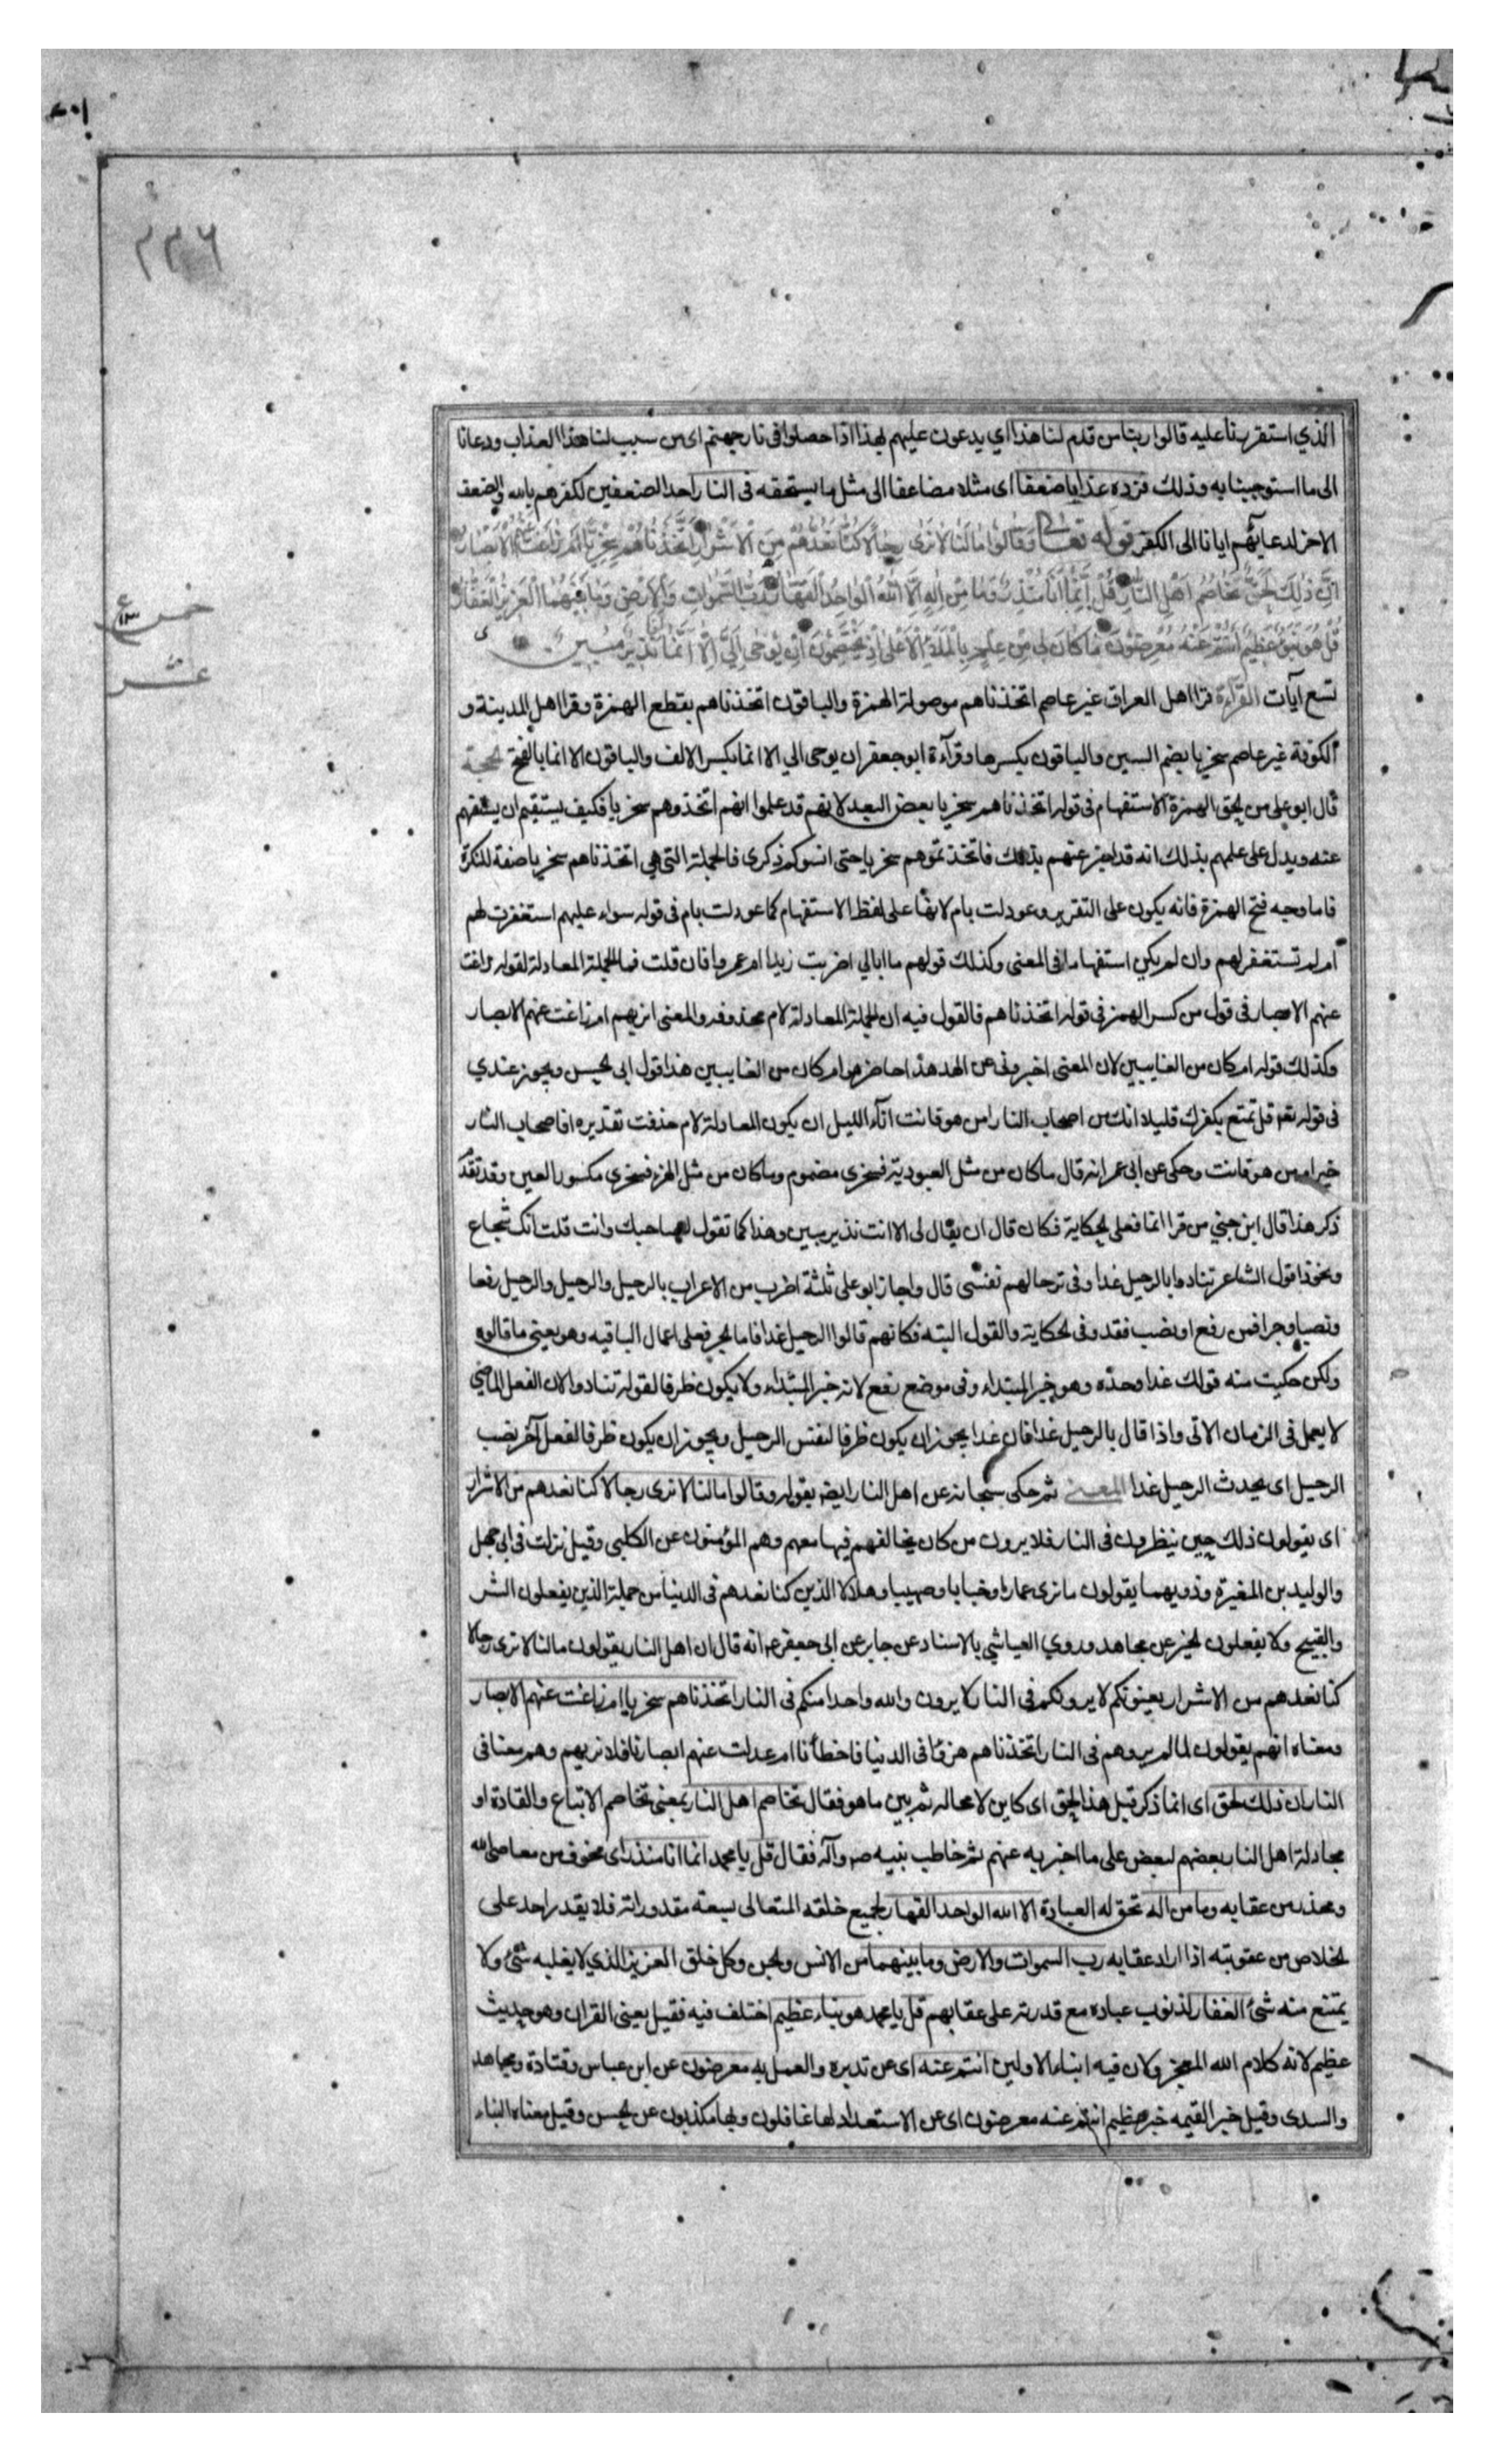 ٢٣٦
الذي استقررنا عليه قالوا ربنا من قدم لنا هذا اي يدعون عليهم بهذا اذا حصلوا في نار جهنم اى من سبب لنا هذا العذاب ودعانا
الى ما استوجبنا به وذلك فزده عذابا ضعفا اى مثلا مضاعفا الى مثل ما يستحقه فى النار احد الضعفين لكفرهم بالله والضعف
الاخر لدعايهم ايانا الى الكفر قوله تعالى وَقَالُوا مَا لَنَا لَا نَرٰى رِجَالًا كُنَّا نَعُدُّهُمْ مِنَ الْاَشْرَارِ اَتَّخَذْنَاهُمْ سِخْرِيًّا اَمْ زَاغَتْ عَنْهُمُ الْاَبْصَارُ
اِنَّ ذٰلِكَ لَحَقٌّ تَخَاصُمُ اَهْلِ النَّارِ قُلْ اِنَّمَا اَنَا مُنْذِرٌ وَمَا مِنْ اِلٰهٍ اِلَّا اللّٰهُ الْوَاحِدُ الْقَهَّارُ رَبُّ السَّمٰوَاتِ وَالْاَرْضِ وَمَا بَيْنَهُمَا الْعَزِيزُ الْغَفَّارُ
قُلْ هُوَ نَبَؤٌ عَظِيمٌ اَنْتُمْ عَنْهُ مُعْرِضُونَ مَا كَانَ لِيَ مِنْ عِلْمٍ بِالْمَلَاِ الْاَعْلٰى اِذْ يَخْتَصِمُونَ اِنْ يُوحٰى اِلَيَّ اِلَّا اَنَّمَا اَنَا نَذِيرٌ مُبِينٌ
خمس
عشر
تسع آيات القرآءة قرا اهل العراق غير عاصم اتخذناهم موصولة الهمزة والباقون اتخذناهم بقطع الهمزة وقرا اهل المدينة و
الكوفة غير عاصم سخريا بضم السين والباقون بكسرها وقرآءة ابو جعفر ان يوحى الي الا انما بكسر الالف والباقون الا انما بالفتح الحجة
قال ابو على من يحق الهمزة الاستفهام فى قوله اتخذناهم سخريا بعض البعد لانهم قد علموا انهم اتخذوهم سخريا فكيف يستقيم ان يستفهم
عنه ويدل على علمهم بذلك انه قد اخبر عنهم بذلك فاتخذتموهم سخريا حتى انسوكم ذكرى فالجملة التى هي اتخذناهم سخريا صفة للنكرة
فاما وجه فتح الهمزة فانه يكون على التقرير وعودلت بام لانها على لفظ الاستفهام كما عودلت بام فى قوله سواء عليهم استغفرت لهم
ام لم تستغفر لهم وان لم يكن استفهاما فى المعنى وكذلك قولهم ما ابالي اضربت زيدا ام عمروا فان قلت فما الجملة المعادلة لقوله زاغت
عنهم الابصار فى قول من كسر الهمز فى قوله اتخذناهم فالقول فيه ان الجملة المعادلة لام محذوفه والمعنى اتراهم ام زاغت عنهم الابصار
وكذلك قوله ام كان من الغايبين لان المعنى اخبرونى عن الهدهد احاضر هو ام كان من الغايبين هذا قول ابى الحسن ويجوز عندي
فى قوله تعه قل تمتع بكفرك قليلا انك من اصحاب النار امن هو قانت انآء الليل ان يكون المعادلة لام حذفت تقديره افاصحاب النار
خير امن هو قانت وحكى عن ابى عمر انه قال ما كان من مثل العبودية فسخرى مضموم وما كان من مثل الهزء فسخرى مكسور العين وقد تقدم
ذكر هذا قال ابن جني من قرا انما فعلى الحكاية فكان قال ان يقال لى الا انت نذير مبين وهذا كما تقول لصاحبك وانت قلت انك شجاع
ونحو ذا قول الشاعر تنادوا بالرحيل غدا وفى ترحالهم نفسى قال واجاز ابو على ثلثة اضرب من الاعراب بالرحيل والرحيل والرحيل رفعا
ونصبا وجرا فمن رفع او نصب فقد وفى الحكاية والقول البته فكانهم قالوا الرحيل غدا فاما الجر فعلى اعمال الباقيه وهو يعني ما قالوه
ولكن حكيت منه قولك غدا وحده وهو خبر المبتداء وفى موضع رفع لانه خبر المبتداء ولا يكون ظرفا لقوله تنادوا لان الفعل الماضي
لا يعمل فى الزمان الاتى واذا قال بالرحيل غدا فان غدا يجوز ان يكون ظرفا لنفس الرحيل ويجوز ان يكون ظرفا لفعل آخر نصب
الرحيل اى يحدث الرحيل غدا المعنى ثم حكى سبحانه عن اهل النار ايضه بقوله وقالوا ما لنا لا نرى رجالا كنا نعدهم من الاشرار
اى يقولون ذلك حين ينظرون فى النار فلا يرون من كان يخالفهم فيها معهم وهم المؤمنون عن الكلبى وقيل نزلت فى ابى جهل
والوليد بن المغيرة وذويهما يقولون ما نرى عمارا وخبابا وصهيبا وهلالا الذين كنا نعدهم فى الدنيا من جملة الذين يفعلون الشر
والقبيح ولا يفعلون الخير عن مجاهد وروي العياشي بالاسناد عن جابر عن ابى جعفر ع انه قال ان اهل النار يقولون ما لنا لا نرى رجالا
كنا نعدهم من الاشرار يعنونكم لا يرونكم فى النار لا يرون والله واحدا منكم فى النار اتخذناهم سخريا ام زاغت عنهم الابصار
ومعناه انهم يقولون لما لم يروهم فى النار اتخذناهم هزوا فى الدنيا فاخطأنا ام عدلت عنهم ابصارنا فلا نريهم وهم معنا فى
النار ان ذلك لحق اى انما ذكر قبل هذا لحق اى كاين لا محاله ثم بين ما هو فقال تخاصم اهل النار بمعنى تخاصم الاتباع والقادة او
مجادلة اهل النار بعضهم لبعض على ما اخبر به عنهم ثم خاطب نبيه صه وآله فقال قل يا محمد انما انا منذر اى مخوف من معاصى الله
ومحذر من عقابه وما من اله تحق له العبادة الا الله الواحد القهار لجميع خلقه المتعالى بسعة مقدوراته فلا يقدر احد على
الخلاص من عقوبته اذا اراد عقابه رب السموات والارض وما بينهما من الانس والجن وكل خلق العزيز الذي لا يغلبه شئ ولا
يمتنع منه شئ الغفار لذنوب عباده مع قدرته على عقابهم قل يا محمد هو نباء عظيم اختلف فيه فقيل يعنى القران وهو حديث
عظيم لانه كلام الله المعجز ولان فيه انباء الاولين انتم عنه اى عن تدبره والعمل به معرضون عن ابن عباس وقتادة ومجاهد
والسدى وقيل خبر القيمه خبر عظيم انتم عنه معرضون اى عن الاستعداد لها غافلون وبها مكذبون عن الحسن وقيل معناه النباء